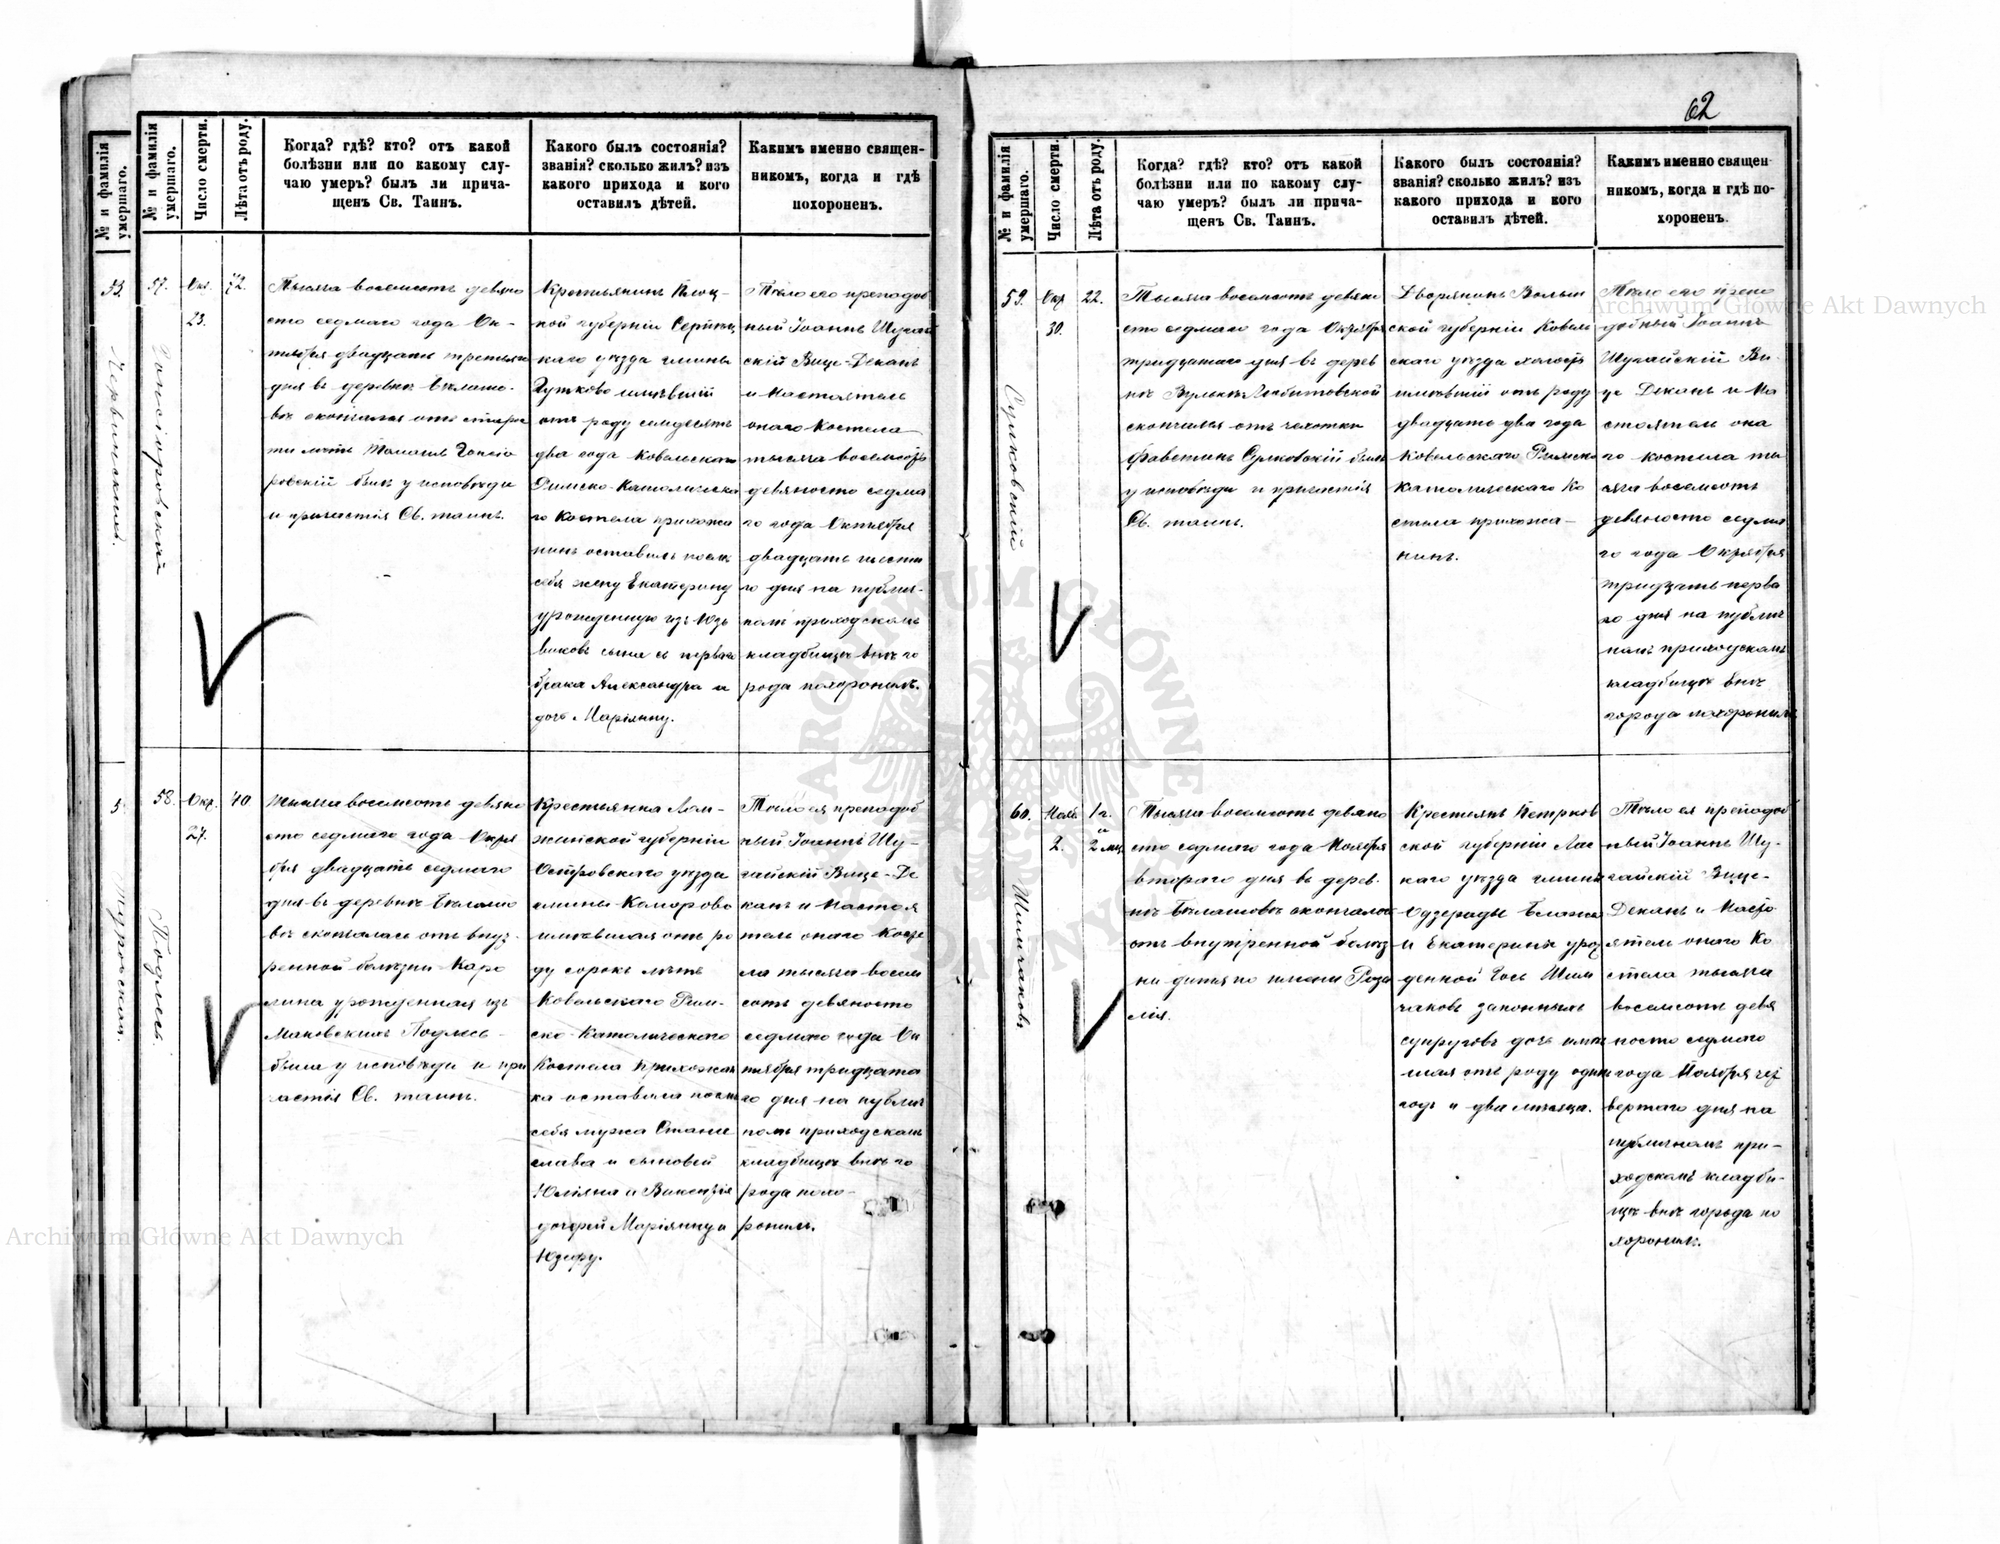 62
№ и фамилія умершаго.
№ и фамилія умершаго.
Число смерти.
Лѣта отъ роду.
Когда? гдѣ? кто? отъ какой
болѣзни или по какому слу-
чаю умеръ? былъ ли прича-
щенъ Св. Таинъ.
Какого былъ состоянія?
званія? сколько жилъ? изъ
какого прихода и кого
оставилъ дѣтей.
Какимъ именно священ-
никомъ, когда и гдѣ
похороненъ.
57.
Окт.
23.
72.
Тысяча восемсотъ девяно
сто седмаго года Ок-
тября двадцать третьяго
дня въ деревнѣ Билашо-
вѣ скончался отъ старос
ти лѣтъ
ровскій былъ у исповѣди
и причастія Св. таинъ.
Крестьянинъ Плоц-
кой губерніи Серпец
каго уѣзда гмины
Гутково имѣвшій
отъ роду семдесятъ
два года Ковельскаго
Римско-Католическа
го Костела прихожа
нинъ оставилъ послѣ
себя жену Екатерину
урожденную изъ Юзь
виковъ сына съ перваго
брака Александра и
дочь Маріянну.
Тѣло его преподоб
ный Іоаннъ Шучай
скій Вице-Деканъ
и Настоятель
онаго Костела
тысяча восемсотъ
девяносто седма
го года Октября
двадцать шеста
го дня на публич-
номъ приходскомъ
кладбищѣ внѣ го
рода похоронилъ.
58.
Окт.
27.
40
Тысяча восемсотъ девяно
сто седмаго года Октя
бря двадцать седмаго
дня въ деревнѣ Билашо
вѣ скончалась отъ внут-
ренной болѣзни Каро
лина урожденная изъ
Маковскихъ Подлесь
была у исповѣди и при
частія Св. таинъ.
Крестьянка Лом-
жинской губерніи
Островскаго уѣзда
гмины Коморово
имѣвшая отъ ро
ду сорокъ лѣтъ
Ковельскаго Рим-
ско-Католическаго
Костела прихожан
ка оставила послѣ
себя мужа Стани
слава и сыновей
Юліяна и Викентія
дочерей Маріянну и
Юзефу.
Тѣло ея преподоб
ный Іоаннъ Шу-
чайскій Вице-Де
канъ и Настоя
тель онаго Косте
ла тысяча восем
сотъ девяносто
седмаго года Ок
тября тридцата
го дня на публич
номъ приходскомъ
кладбищѣ внѣ го
рода похо-
ронилъ.
№ и фамилія умершаго.
Число смерти.
Лѣта отъ роду.
Когда? гдѣ? кто? отъ какой
болѣзни или по какому слу-
чаю умеръ? былъ ли прича-
щенъ Св. Таинъ.
Какого былъ состоянія?
званія? сколько жилъ? изъ
какого прихода и кого
оставилъ дѣтей.
Какимъ именно священ-
никомъ, когда и гдѣ по-
хороненъ.
59.
Сулковскій
Окт
30.
22.
Тысяча восемсотъ девяно
сто седмаго года Октября
тридцатаго дня въ дерев
нѣ Вулькѣ-Любитовской
скончался отъ чахотки
Фавстинъ Сулковскій былъ
у исповѣди и причастія
Св. таинъ.
Дворянинъ Волын
ской губерніи Ковель
скаго уѣзда холостъ
имѣвшій отъ роду
двадцать два года
Ковельскаго Римско
Католическаго Ко
стела прихожа-
нинъ.
Тѣло его препо
добный Іоаннъ
Шучайскій Ви-
це Деканъ и На
стоятель она
го костела ты
сяча восемсотъ
девяносто седма
го года Октября
тридцать перва
го дня на публич
номъ приходскомъ
кладбищѣ внѣ
города похоронилъ.
60.
Шимчаковъ
Нояб.
2.
1 г.
и
2 мц.
Тысяча восемсотъ девяно
сто седмаго года Ноября
втораго дня въ дерев-
нѣ Билашовѣ скончалось
отъ внутренной болѣз
ни дитя по имени Роза
лія.
Крестьянъ Петрков
ской губерніи Лас
каго уѣзда гмины
Блажея
и Екатерины урож
денной Гось Шим
чаковъ законныхъ
супруговъ дочь имѣв
шая отъ роду одинъ
годъ и два мѣсяца.
Тѣло ея преподоб
ный Іоаннъ Шу-
чайскій Вице-
Деканъ и Насто
ятель онаго Ко
стела тысяча
восемсотъ девя
носто седмаго
года Ноября чет
вертаго дня на
публичномъ при-
ходскомъ кладби-
щѣ внѣ города по
хоронилъ.
Archiwum Główne Akt Dawnych
Archiwum Główne Akt Dawnych
ARCHIWUM GŁÓWNE AKT DAWNYCH